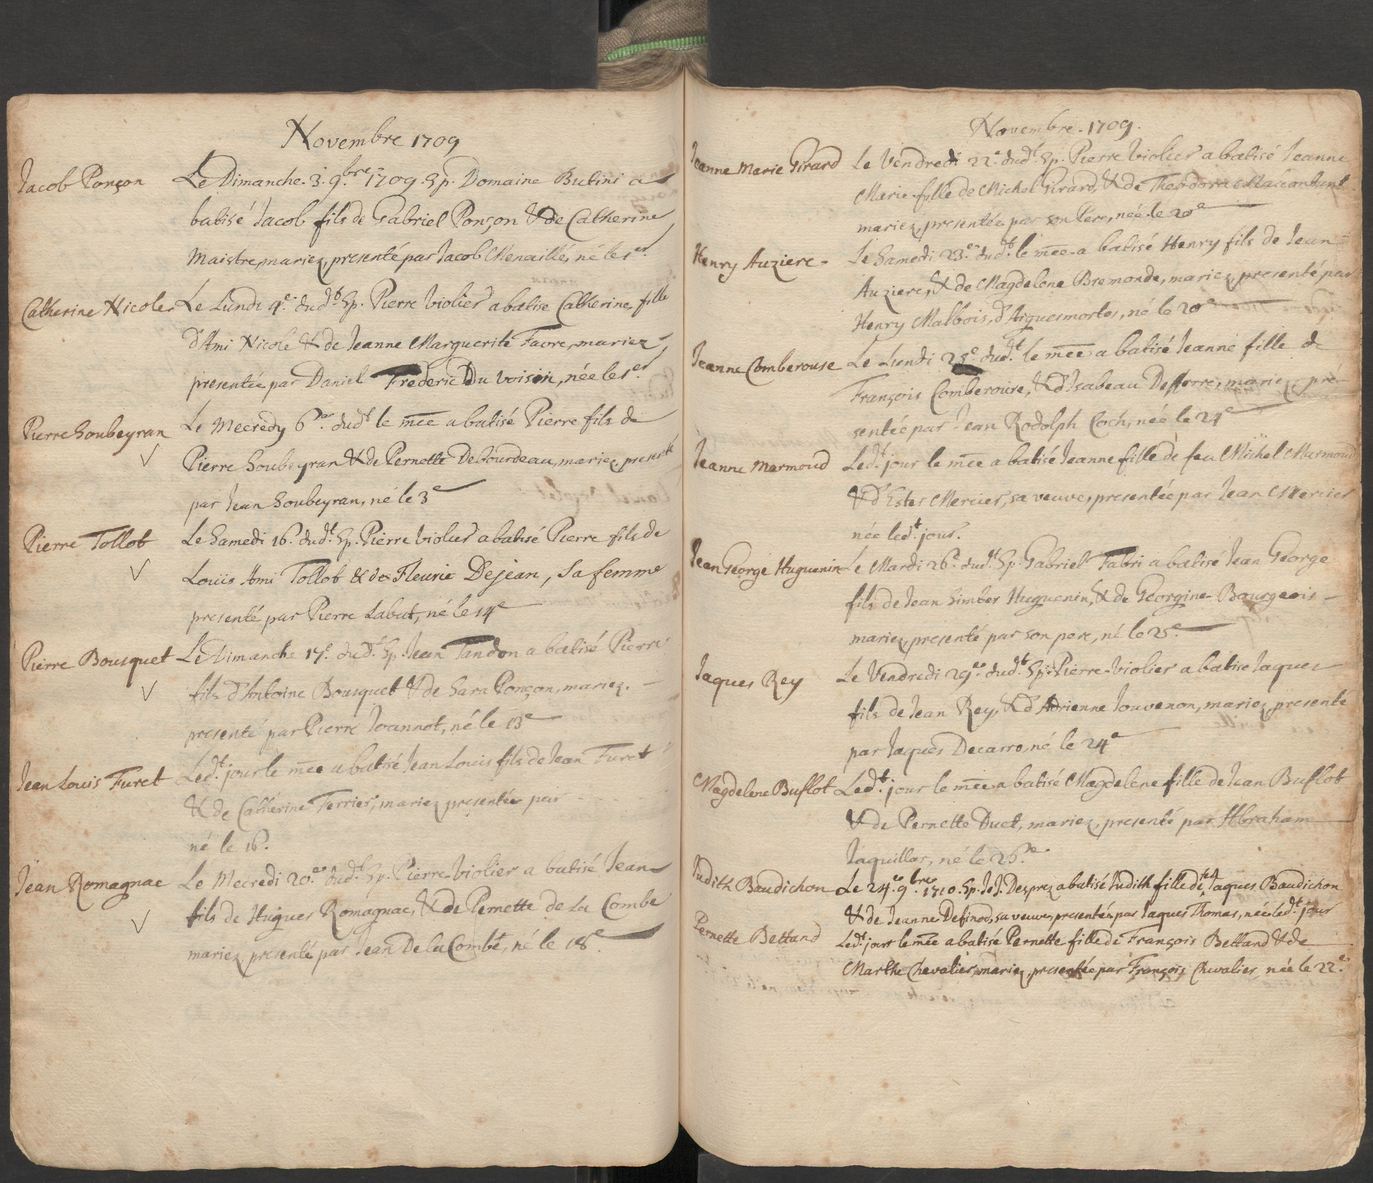 Novembre 1709
Jacob Ponçon
Le Dimanche. 3. 9.bre 1709. Sp. Domaine Butini a
batisé Jacob fils de Gabriel Ponçon & de Catherine
Maistre, mariez, presenté par Jacob Menaillé, né le 1er
Catherine Nicole
Le Lundi 4e dudt Sp. Pierre Violier a batisé Catherine fille
d'Ami Nicole & de Jeanne Marguerite Favre, mariez
presentée par Daniel Frederic Du Voisin, née le 1er
Pierre Soubeyran
Le Mecredy 6e dudt le mee a batisé Pierre fils de
Pierre Soubeyran & de Pernette DeTourdeau, mariez, presenté
par Jean Soubeyran, né le 3e
Pierre Tollot
Le Samedi 16. dudt Sp. Pierre Violier a batisé Pierre fils de
Louïs Ami Tollot & de Fleurie Dejean, sa femme
presenté par Pierre Labat, né le 14e
Pierre Bousquet
Le Dimanche 17e dudt Sp. Jean Tandon a batisé Pierre
fils d'Antoine Bousquet & de Sara Ponçon, mariez.
presenté par Pierre Joannot, né le 13e
Jean Louis Furet
Ledt jour le mee a batisé Jean Louis fils de Jean Furet
& de Catherine Terrier, mariez presentée par
né le 16.
Jean Romagnac
Le Mecredi 20.e dudt Sp. Pierre Violier a batisé Jean
fils de Hugues Romagnac, & de Pernette de La Combe
mariez presenté par Jean De la Combe, né le 18e
Novembre. 1709.
Jeanne Marie Girard
Le Vendredi 22.e dudt Sp. Pierre Violier a batisé Jeanne
Marie fille de Michel Girard, & de Theodora
mariez, presentée par son Pere, née le 20e
Henry Auziere
Le Samedi 23.e dudt le mee a batisé Henry fils de Jean
Auziere, & de Magdelene Bremonde, mariez, presenté par
Henry Malbois, d'Aiguesmortes, né le 20e
Jeanne Comberouse
Le Lundi 25e dudt le mee a batisé Jeanne fille de
François Comberouse, & d'Isabeau Defferre, mariez, pre-
sentée par Jean Rodolph Coch, née le 24e
Jeanne Marmoud
Ledt jour le mee a batisé Jeanne fille de feu Michel Marmoud
& d'Ester Mercier, sa veuve, presentée par Jean Mercier
née ledt jour.
Jean George Huguenin
Le Mardi 26e dudt Sp. Gabriel Fabri a batisé Jean George
fils de Jean Simber Huguenin, & de Georgine Bourgeois
mariez, presenté par son pere, né le 25e
Jaques Rey
Le Vendredi 29e dudt Sp. Pierre Violier a batisé Jaques
fils de Jean Rey, & d'Adrienne Jouvenon, mariez, presenté
par Jaques Decarro, né le 24e
Magdelene Buflot
Ledt jour le mee a batisé Magdelene fille de Jean Buflot
& de Pernette Duct, mariez, presenté par Abraham
Jaquillar, né le 26e
Judith Baudichon
Le 24e 9.bre 1710. Sp. J. J. Desprez a batisé Judith fille de Jaques Baudichon
& de Jeanne Definod, sa veuve, presentée par Jaques Thomas, née ledt jour
Pernette Bettand
Ledt jour le mee a batisé Pernette fille de François Bettand & de
Marthe Chevalier, mariez, presentée par François Chevalier, née le 22e